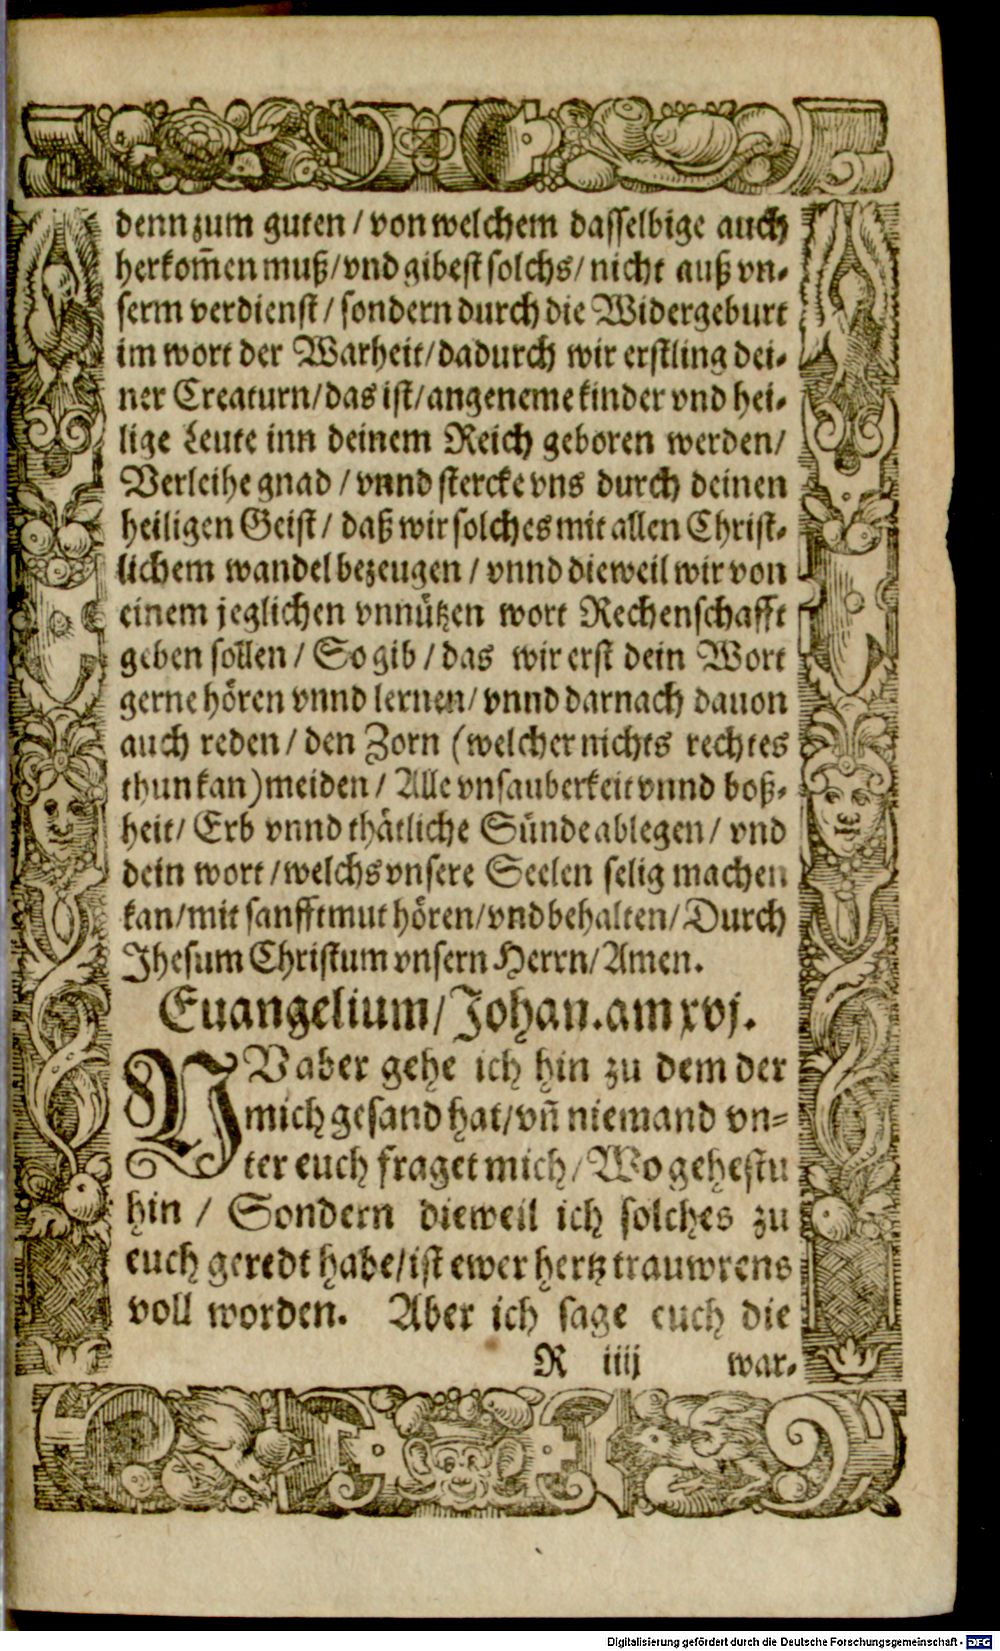 denn zum guten / von welchem dasselbige auch
herkom̃en muß / vnd gibest solchs / nicht auß vn-
serm verdienst / sondern durch die Widergeburt
im wort der Warheit / dadurch wir erstling dei-
ner Creaturn / das ist / angeneme kinder vnd hei-
lige Leute inn deinem Reich geboren werden /
Verleihe gnad / vnnd stercke vns durch deinen
heiligen Geist / daß wir solches mit allen Christ-
lichem wandel bezeugen / vnnd dieweil wir von
einem jeglichen vnnützen wort Rechenschafft
geben sollen / So gib / das wir erst dein Wort
gerne hören vnnd lernen / vnnd darnach dauon
auch reden / den Zorn (welcher nichts rechtes
thun kan) meiden / Alle vnsauberkeit vnnd boß-
heit / Erb vnnd thätliche Sünde ablegen / vnd
dein wort / welchs vnsere Seelen selig machen
kan / mit sanfftmut hören / vnd behalten / Durch
Jhesum Christum vnsern Herrn / Amen.
Euangelium / Johan. am xvj.
NV aber gehe ich hin zu dem der
mich gesand hat / vñ niemand vn-
ter euch fraget mich / Wo gehestu
hin / Sondern dieweil ich solches zu
euch geredt habe / ist ewer hertz trauwrens
voll worden. Aber ich sage euch die
R iiij war-
Digitalisierung gefördert durch die Deutsche Forschungsgemeinschaft - DFG